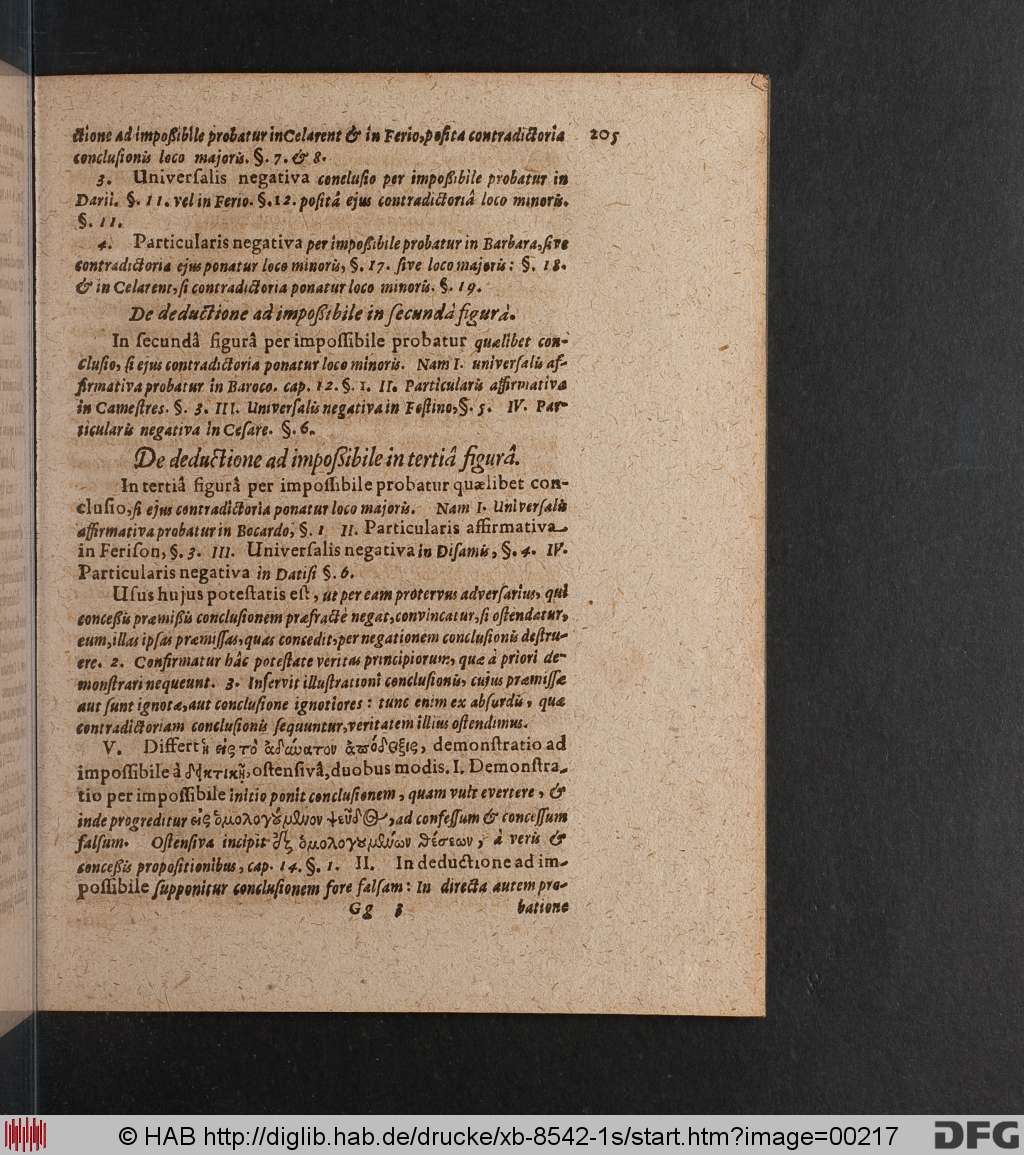 ctione ad impoßibile probatur in Celarent & in Ferio, posita contradictoria 205
conclusionis loco majoris. §. 7. & 8.
3. Universalis negativa conclusio per impoßibile probatur in
Darii. §. 11. vel in Ferio. §. 12. positâ ejus contradictoriâ loco minoris.
§. 11.
4. Particularis negativa per impoßibile probatur in Barbara, sive
contradictoria ejus ponatur loco minoris, §. 17. sive loco majoris: §. 18.
& in Celarent, si contradictoria ponatur loco minoris. §. 19.
De deductione ad impoßibile in secundâ figurâ.
In secundâ figurâ per impossibile probatur quælibet con-
clusio, si ejus contradictoria ponatur loco minoris. Nam I. universalis af-
firmativa probatur in Baroco. cap. 12. §. 1. II. Particularis affirmativa
in Camestres. §. 3. III. Universalis negativa in Festino, §. 5. IV. Par-
ticularis negativa in Cesare. §. 6.
De deductione ad impoßibile in tertiâ figurâ.
In tertiâ figurâ per impossibile probatur quælibet con-
clusio, si ejus contradictoria ponatur loco majoris. Nam I. Universalis
affirmativa probatur in Bocardo, §. 1 II. Particularis affirmativa
in Ferison, §. 3. III. Universalis negativa in Disamis, §. 4. IV.
Particularis negativa in Datisi §. 6.
Usus hujus potestatis est, ut per eam protervus adversarius, qui
conceßis præmißis conclusionem præfractè negat, convincatur, si ostendatur,
eum, illas ipsas præmissas, quas concedit, per negationem conclusionis destru-
ere. 2. Confirmatur hâc potestate veritas principiorum, quæ à priori de-
monstrari nequeunt. 3. Inservit illustrationi conclusionis, cujus præmissæ
aut sunt ignotæ, aut conclusione ignotiores: tunc enim ex absurdis, quæ
contradictoriam conclusionis sequuntur, veritatem illius ostendimus.
V. Differt ἡ εἰς τὸ ἀδύνατον ἀπόδειξις, demonstratio ad
impossibile à δεικτικῇ, ostensivâ, duobus modis. I. Demonstra-
tio per impossibile initio ponit conclusionem, quam vult evertere, &
inde progreditur εἰς ὁμολογούμενον ψεῦδος, ad confessum & concessum
falsum. Ostensiva incipit ἐξ ὁμολογουμένων θέσεων, à veris &
conceßis propositionibus, cap. 14. §. 1. II. In deductione ad im-
possibile supponitur conclusionem fore falsam: In directa autem pro-
Gg 3 batione
© HAB http://diglib.hab.de/drucke/xb-8542-1s/start.htm?image=00217 DFG